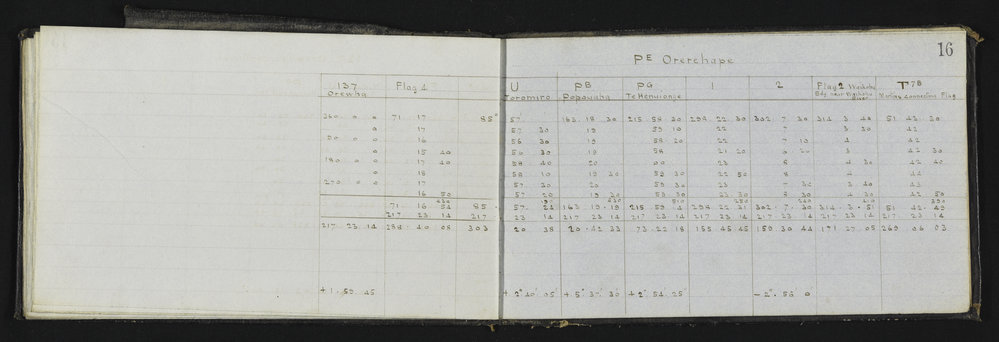 16
PE Orerehape
137 Flag 4 U PB PG 1 2 Flag 2 T 7B
Orewha Toromiro Te Henuionge Connecting Flag
360 0 0 71 17 85° 57' 163 18 30 215 58 30 298 22 30 302 7 30 314 3 40 51 42 30
0 17 57 30 19 59 10 22 7 3 30 42
90 0 0 16 56 30 19 58 20 22 7 10 4 42
0 15 40 56 30 19 58 21 20 6 20 3 42 30
180 0 0 17 40 58 40 20 60 23 8 4 30 42 40
0 18 58 10 19 40 59 30 22 50 8 4 44
270 0 0 17 57 30 20 59 30 23 7 30 3 40 43
16 50 57 20 19 30 59 30 22 30 8 30 4 30 42 50
71 16 54 85 57 24 163 19 19 215 59 4 298 22 31 302 7 30 314 3 51 51 42 49
217 23 14 217 23 14 217 23 14 217 23 14 217 23 14 217 23 14 217 23 14 217 23 14
217 23 14 288 40 08 303 20 38 20 42 33 73 22 18 155 45 45 159 30 44 171 27 05 269 06 03
+ 1 59 45 + 2° 40' 05" + 5° 37' 30" + 2° 54' 25" - 2° 56' 0